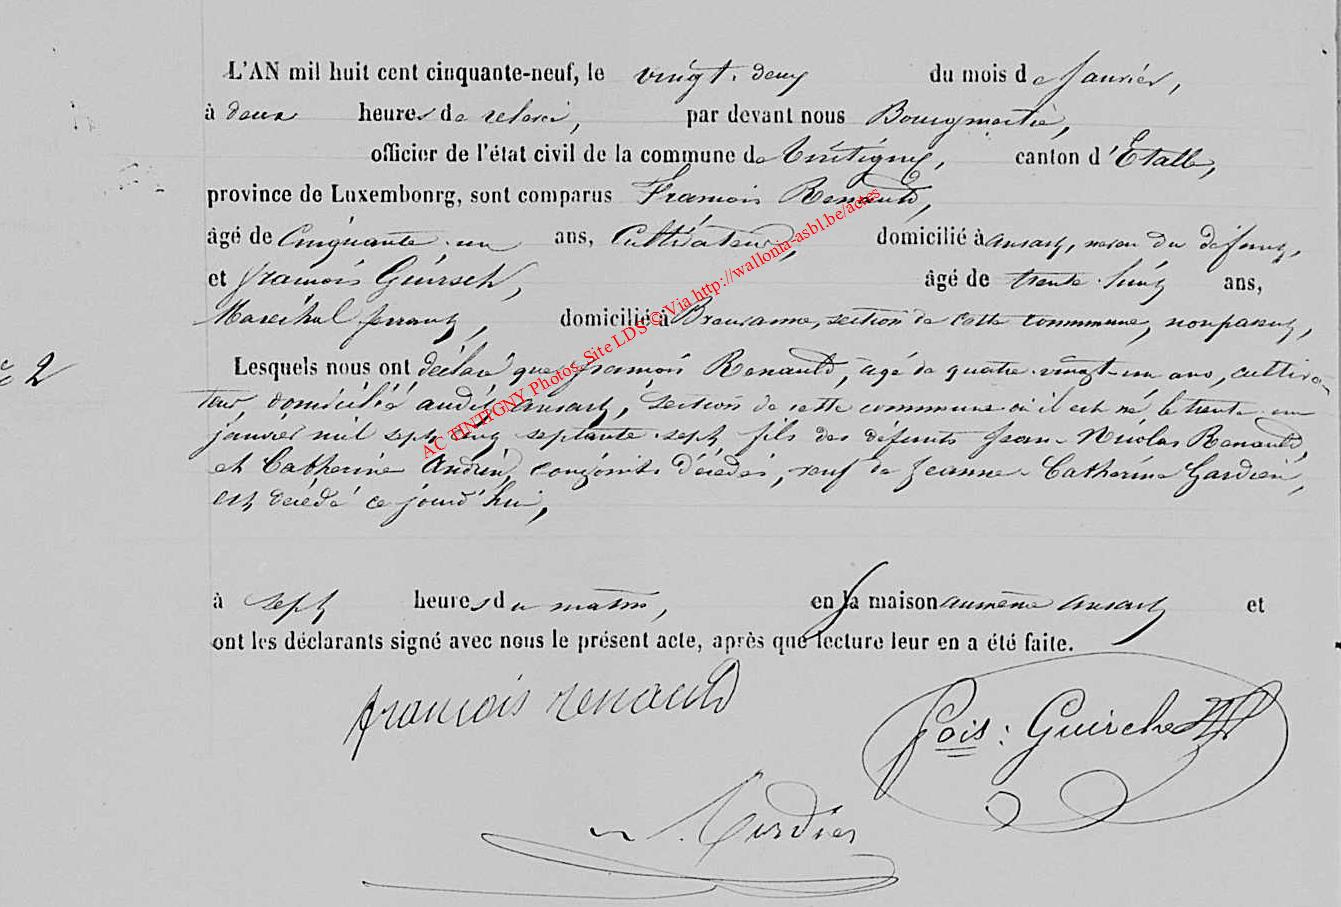 L'AN mil huit cent cinquante-neuf, le vingt-deux du mois de Janvier,
à deux heures de relevée, par devant nous Bourgmestre,
officier de l'état civil de la commune de Tintigny, canton d'Etalle,
province de Luxembourg, sont comparus François Renauld,
âgé de Cinquante-un ans, Cultivateur, domicilié à ansart, neveu du défunt,
et françois Guirsch, âgé de trente-huit ans,
Maréchal ferrant, domicilié à Breuvanne, section de cette commune, non parent,
N° 2
Lesquels nous ont déclaré que françois Renauld, âgé de quatre-vingt-un ans, cultiva-
teur, domicilié audit ansart, section de cette commune où il est né le trente-un
janvier mil sept cent septante-sept, fils des défunts Jean-Nicolas Renauld,
et Catherine Andrin, conjoints décédés, veuf de Jeanne-Catherine Gardien,
est décédé ce jourd'hui,
à sept heures du matin, en sa maison au même ansart et
ont les déclarants signé avec nous le présent acte, après que lecture leur en a été faite.
françois renauld
fois: Guirche
AC TINTIGNY Photos Site LDS © Via http://wallonia-asbl.be/actes